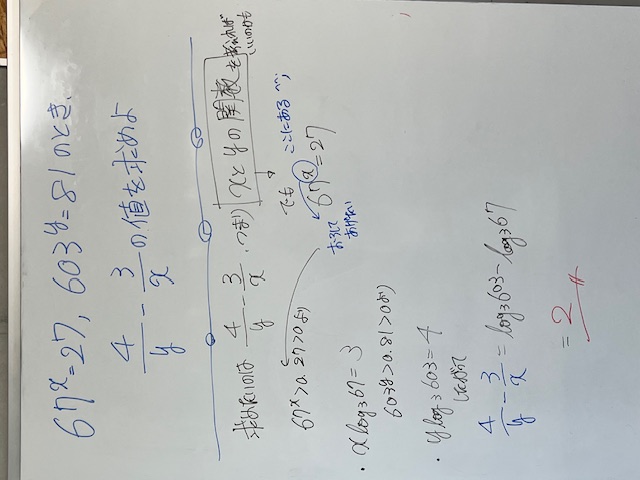 67^x=27, 603^y=81のとき、
4/y - 3/x の値を求めよ
求めたいのは 4/y - 3/x、つまり xとyの関数を考えれば
いいのかも
でも ここにある…
67^x=27
おろして
あげたい
67^x>0, 27>0より
・x log₃67=3
603^y>0, 81>0より
・y log₃603=4
したがって
4/y - 3/x = log₃603 - log₃67
= 2